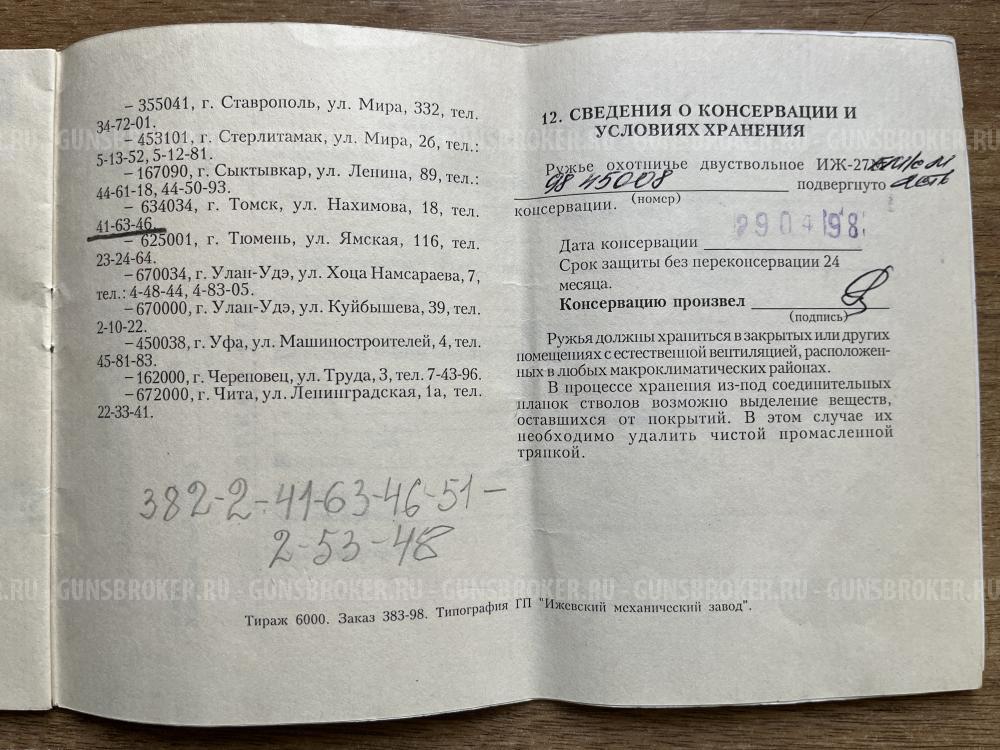 – 355041, г. Ставрополь, ул. Мира, 332, тел.
34-72-01.
– 453101, г. Стерлитамак, ул. Мира, 2б, тел.:
5-13-52, 5-12-81.
– 167090, г. Сыктывкар, ул. Ленина, 89, тел.:
44-61-18, 44-50-93.
– 634034, г. Томск, ул. Нахимова, 18, тел.
41-63-46.
– 625001, г. Тюмень, ул. Ямская, 116, тел.
23-24-64.
– 670034, г. Улан-Удэ, ул. Хоца Намсараева, 7,
тел.: 4-48-44, 4-83-05.
– 670000, г. Улан-Удэ, ул. Куйбышева, 39, тел.
2-10-22.
– 450038, г. Уфа, ул. Машиностроителей, 4, тел.
45-81-83.
– 162000, г. Череповец, ул. Труда, 3, тел. 7-43-96.
– 672000, г. Чита, ул. Ленинградская, 1а, тел.
22-33-41.
382-2-41-63-46-51-
2-53-48
12. СВЕДЕНИЯ О КОНСЕРВАЦИИ И
УСЛОВИЯХ ХРАНЕНИЯ
Ружье охотничье двуствольное ИЖ-27
98 45008 подвергнуто
(номер)
консервации.
Дата консервации 290498
Срок защиты без переконсервации 24
месяца.
Консервацию произвел
(подпись)
Ружья должны храниться в закрытых или других
помещениях с естественной вентиляцией, расположен-
ных в любых макроклиматических районах.
В процессе хранения из-под соединительных
планок стволов возможно выделение веществ,
оставшихся от покрытий. В этом случае их
необходимо удалить чистой промасленной
тряпкой.
Тираж 6000. Заказ 383-98. Типография ГП "Ижевский механический завод".
GUNSBROKER.RU - GUNSBROKER.RU - GUNSBROKER.RU - GUNSBROKER.RU - GUNSBROKER.RU
.RU - GUNSBROKER.RU - GUNSBROKER.RU - GUNSBROKER.RU - GUNSBROKER.RU - GUNSBROKER.RU